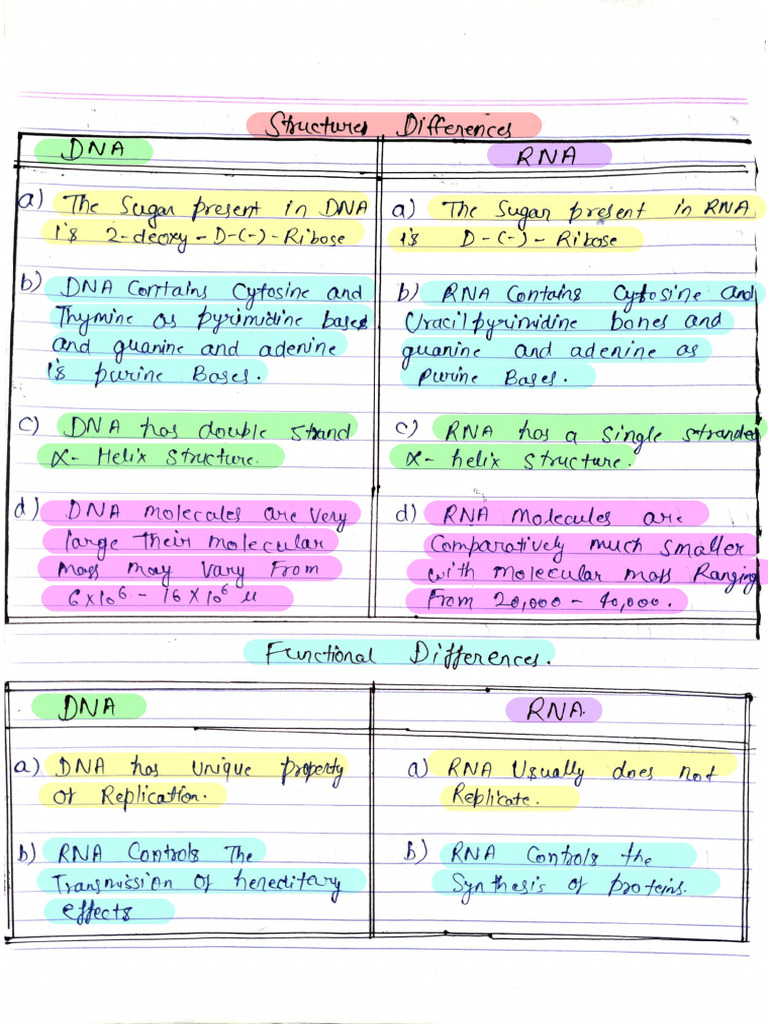 Structures Differences
DNA
a) The Sugar present in DNA
is 2-deoxy-D-(-)-Ribose
b) DNA Contains Cytosine and
Thymine as pyrimidine bases
and guanine and adenine
is purine Bases.
c) DNA has double strand
α- Helix Structure.
d) DNA molecules are very
large their molecular
mass may vary from
6×10⁶ - 16×10⁶ u
RNA
a) The Sugar present in RNA
is D-(-)-Ribose
b) RNA Contains Cytosine and
Uracil pyrimidine bones and
guanine and adenine as
Purine Bases.
c) RNA has a single stranded
α- helix structure.
d) RNA Molecules are
Comparatively much smaller
with molecular mass Ranging
From 20,000 - 40,000.
Functional Differences.
DNA
a) DNA has unique property
of Replication.
b) RNA Controls The
Transmission of hereditary
effects
RNA
a) RNA Usually does not
Replicate.
b) RNA Controls the
Synthesis of proteins.